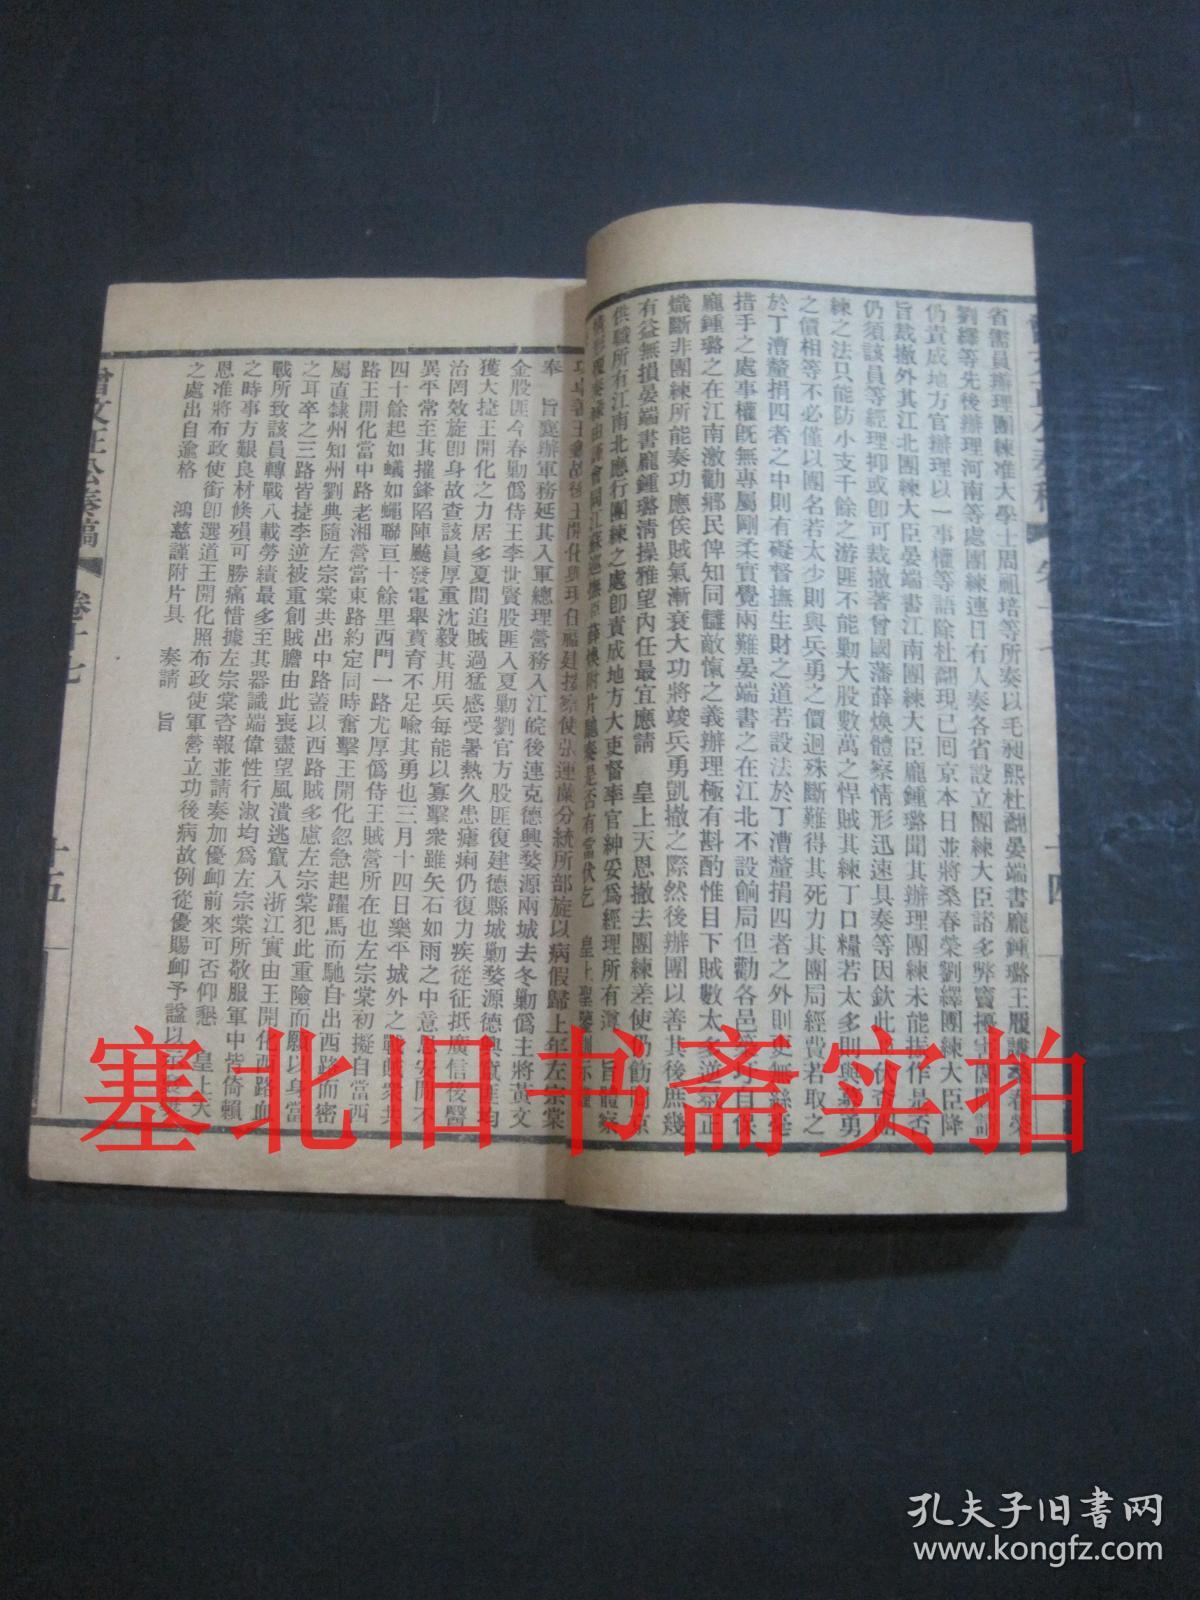 省需員辦理團練准大學士周祖培等所奏以毛昶熙杜翮晏端書龐鍾璐王履謙桑春榮
劉繹等先後辦理河南等處團練連日有人奏各省設立團練大臣諸多弊竇擾害
仍責成地方官辦理以一事權等語除杜翮現已回京本日並將桑春榮劉繹團練大臣降
旨裁撤外其江北團練大臣晏端書江南團練大臣龐鍾璐聞其辦理團練未能振作是否
仍須該員等經理抑或卽可裁撤著曾國藩薛煥體察情形迅速具奏等因欽此 伏查團
練之法只能防小支千餘之游匪不能勦大股數萬之悍賊其練丁口糧若太多則與募勇
之價相等不必僅以團名若太少則與兵勇之價迥殊斷難得其死力其團局經費若取之
於丁漕釐捐四者之中則有礙督撫生財之道若設法於丁漕釐捐四者之外則更無絲毫
措手之處事權旣無專屬剛柔實覺兩難晏端書之在江北不設餉局但勸各邑 自保
龐鍾璐之在江南激勸鄉民俾知同讎敵愾之義辦理極有斟酌惟目下賊數太多逆氛正
熾斷非團練所能奏功應俟賊氣漸衰大功將竣兵勇凱撤之際然後辦團以善其後庶幾
有益無損晏端書龐鍾璐清操雅望內任最宜應請 皇上天恩撤去團練差使仍飭回京
供職所有江南北應行團練之處卽責成地方大吏督率官紳妥爲經理所有遵 旨體察
覆奏緣由謹會同江蘇巡撫臣薛煥附片馳奏是否有當伏乞 皇上聖鑒訓示謹
王開化與現任福建按察使張運蘭分統所部旋以病假歸上年左宗棠
奉 旨襄辦軍務延其入軍總理營務入江皖後連克德興婺源兩城去冬勦僞主將黃文
金股匪今春勦僞侍王李世賢股匪入夏勦劉官方股匪復建德縣城勦婺源德興竄匪均
獲大捷王開化之力居多夏間追賊過猛感受暑熱久患瘧痢仍復力疾從征抵廣信後醫
治罔效旋卽身故查該員厚重沈毅其用兵每能以寡擊衆雖矢石如雨之中意思安閒不
異平常至其摧鋒陷陣飈發電舉賁育不足喩其勇也三月十四日樂平城外之戰賊衆共
四十餘起如蟻如蠅聯亘十餘里西門一路尤厚僞侍王賊營所在也左宗棠初擬自當西
路王開化當中路老湘營當東路約定同時奮擊王開化忽急起躍馬而馳自出西路而密
屬直隸州知州劉典隨左宗棠共出中路蓋以西路賊多慮左宗棠犯此重險而願以身當
之耳卒之三路皆捷李逆被重創賊膽由此喪盡望風潰逃竄入浙江實由王開化西路血
戰所致該員轉戰八載勞績最多至其器識端偉性行淑均爲左宗棠所敬服軍中皆倚賴
之時事方艱良材倏殞可勝痛惜據左宗棠咨報並請奏加優卹前來可否仰懇 皇上天
恩准將布政使銜卽選道王開化照布政使軍營立功後病故例從優賜卹予諡以
之處出自逾格 鴻慈謹附片具 奏請 旨
曾文正公奏稿 卷十七 十五
塞北旧书斋实拍
孔夫子旧书网
www.kongfz.com